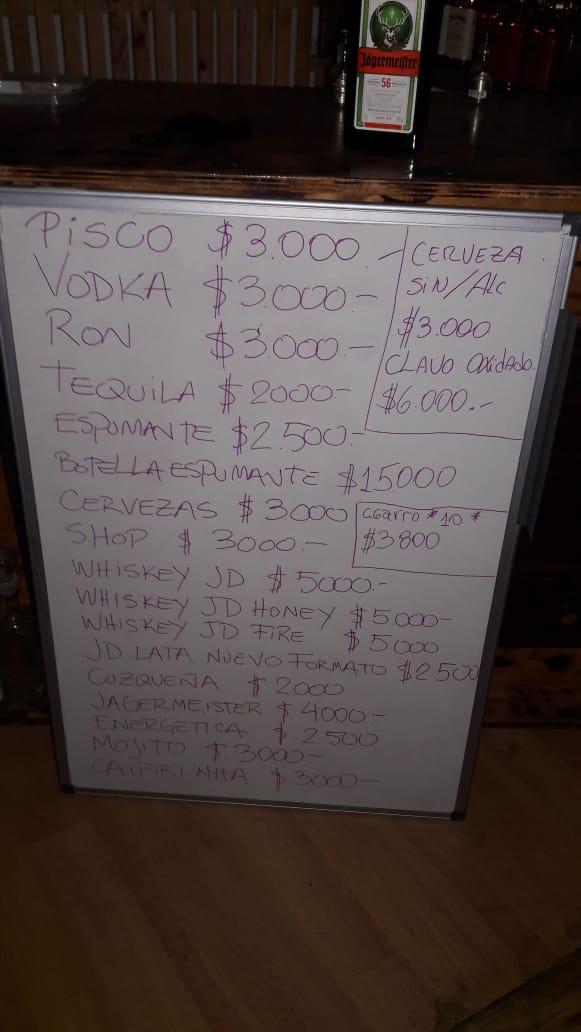 Jägermeister
56
PISCO $3.000.-
VODKA $3.000-
RON $3.000.-
TEQUILA $2000-
ESPUMANTE $2.500.-
BOTELLA ESPUMANTE $15.000
CERVEZAS $3000
SHOP $3000.-
WHISKEY JD $5000.-
WHISKEY JD HONEY $5000-
WHISKEY JD FIRE $5000
JD LATA NUEVO FORMATO $2500
CUZQUEÑA $2000
JAGERMEISTER $4000-
ENERGETICA $2500
MOJITO $3000-
CAIPIRINHA $3000-
CERVEZA
SIN/ALC
$3.000
CLAVO OXIDADO
$6.000.-
CGARRO *10*
$3800